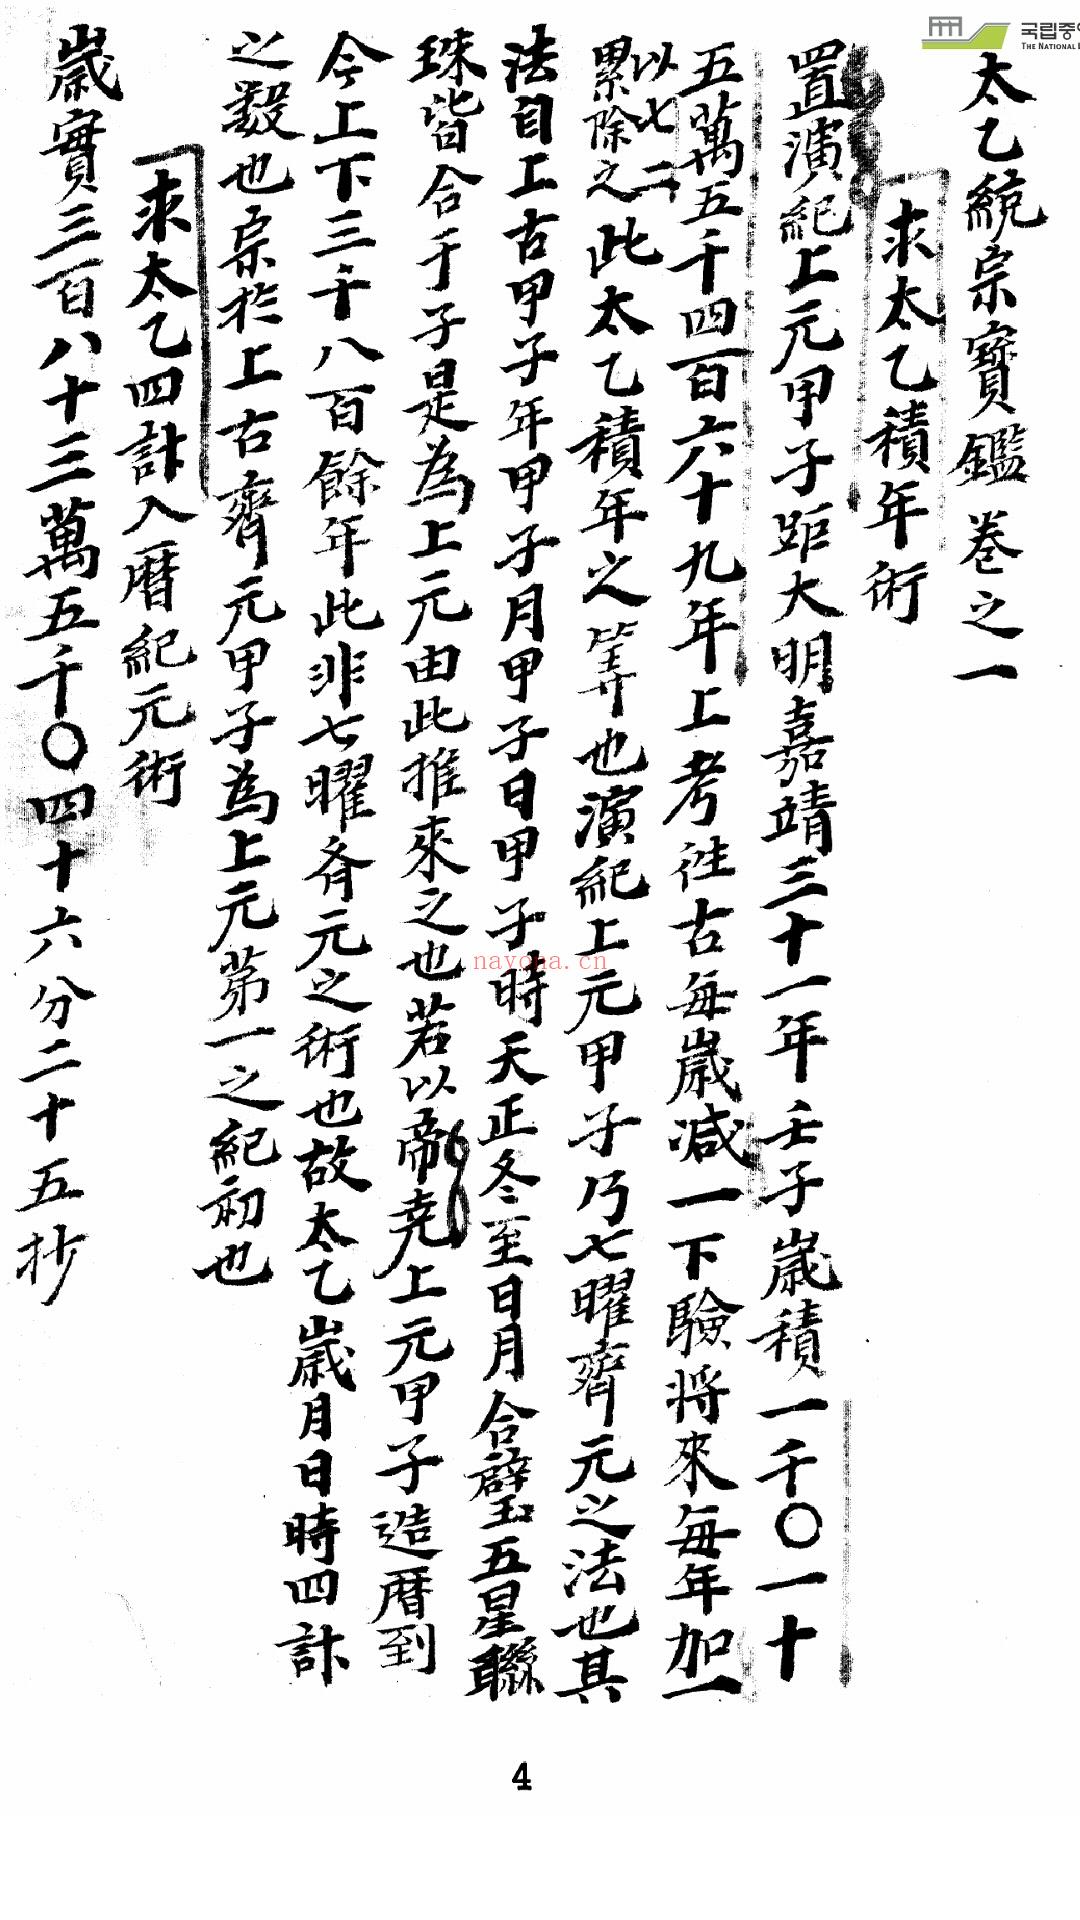 太乙統宗寶鑑卷之一
求太乙積年術
置演紀上元甲子距大明嘉靖三十一年壬子歲積一千〇一十
五萬五千四百六十九年上考徃古每歲减一下驗將來每年加一
以七二
累除之此太乙積年之筭也演紀上元甲子乃七曜齊元之法也其
法自上古甲子年甲子月甲子日甲子時天正冬至日月合璧五星聯
珠皆合于子是為上元由此推來之也若以帝堯上元甲子造曆到
今上下三千八百餘年此非七曜斉元之術也故太乙歲月日時四計
之數也宗於上古齊元甲子為上元第一之紀初也
求太乙四計入曆紀元術
歲實三百八十三萬五千〇四十六分二十五抄
국립중앙
THE NATIONAL
nayona.cn
4